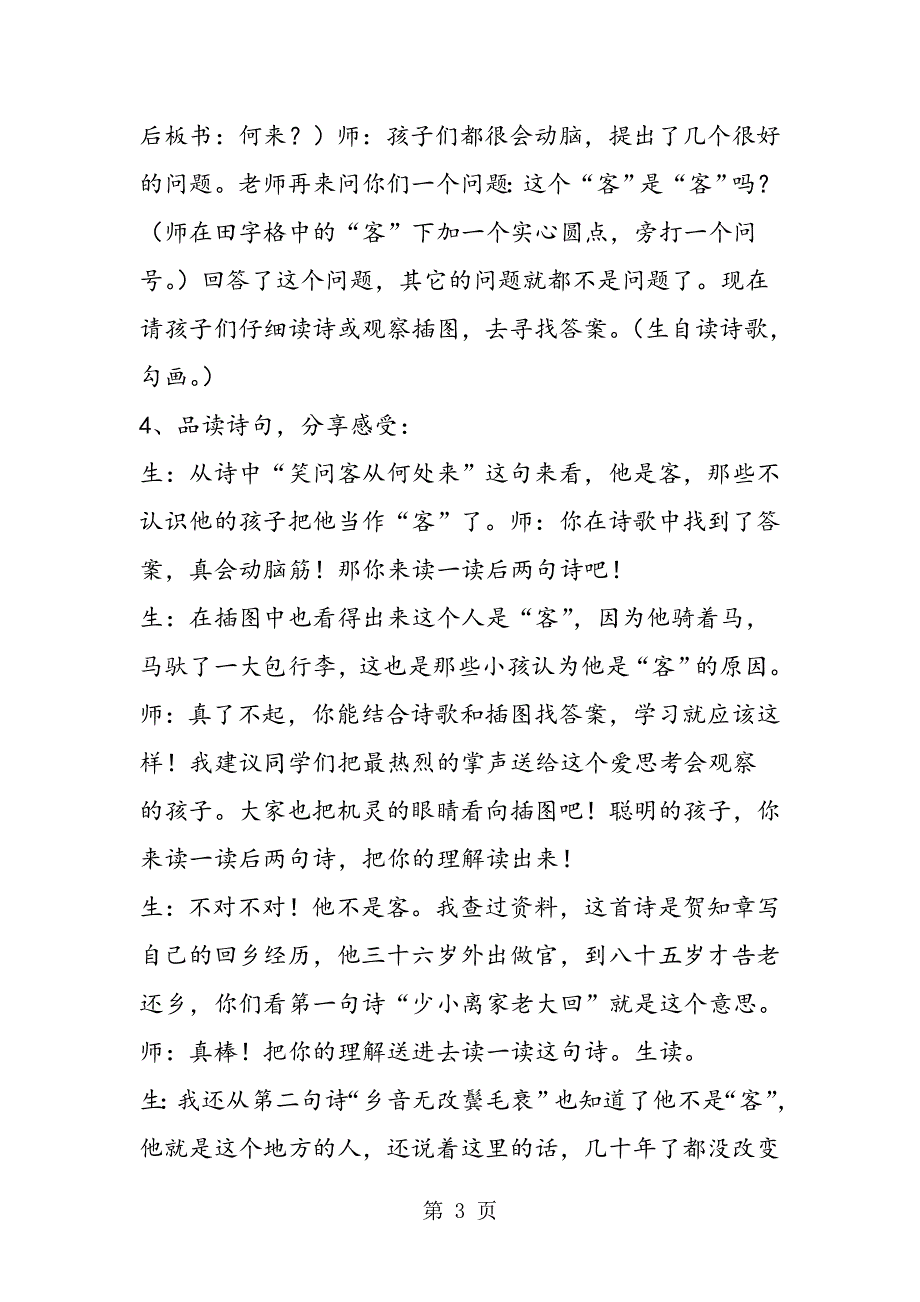 后板书：何来？）师：孩子们都很会动脑，提出了几个很好
的问题。老师再来问你们一个问题：这个“客”是“客”吗？
（师在田字格中的“客”下加一个实心圆点，旁打一个问
号。）回答了这个问题，其它的问题就都不是问题了。现在
请孩子们仔细读诗或观察插图，去寻找答案。（生自读诗歌，
勾画。）
4、品读诗句，分享感受：
生：从诗中“笑问客从何处来”这句来看，他是客，那些不
认识他的孩子把他当作“客”了。师：你在诗歌中找到了答
案，真会动脑筋！那你来读一读后两句诗吧！
生：在插图中也看得出来这个人是“客”，因为他骑着马，
马驮了一大包行李，这也是那些小孩认为他是“客”的原因。
师：真了不起，你能结合诗歌和插图找答案，学习就应该这
样！我建议同学们把最热烈的掌声送给这个爱思考会观察
的孩子。大家也把机灵的眼睛看向插图吧！聪明的孩子，你
来读一读后两句诗，把你的理解读出来！
生：不对不对！他不是客。我查过资料，这首诗是贺知章写
自己的回乡经历，他三十六岁外出做官，到八十五岁才告老
还乡，你们看第一句诗“少小离家老大回”就是这个意思。
师：真棒！把你的理解送进去读一读这句诗。生读。
生：我还从第二句诗“乡音无改鬓毛衰”也知道了他不是“客”，
他就是这个地方的人，还说着这里的话，几十年了都没改变
第 3 页